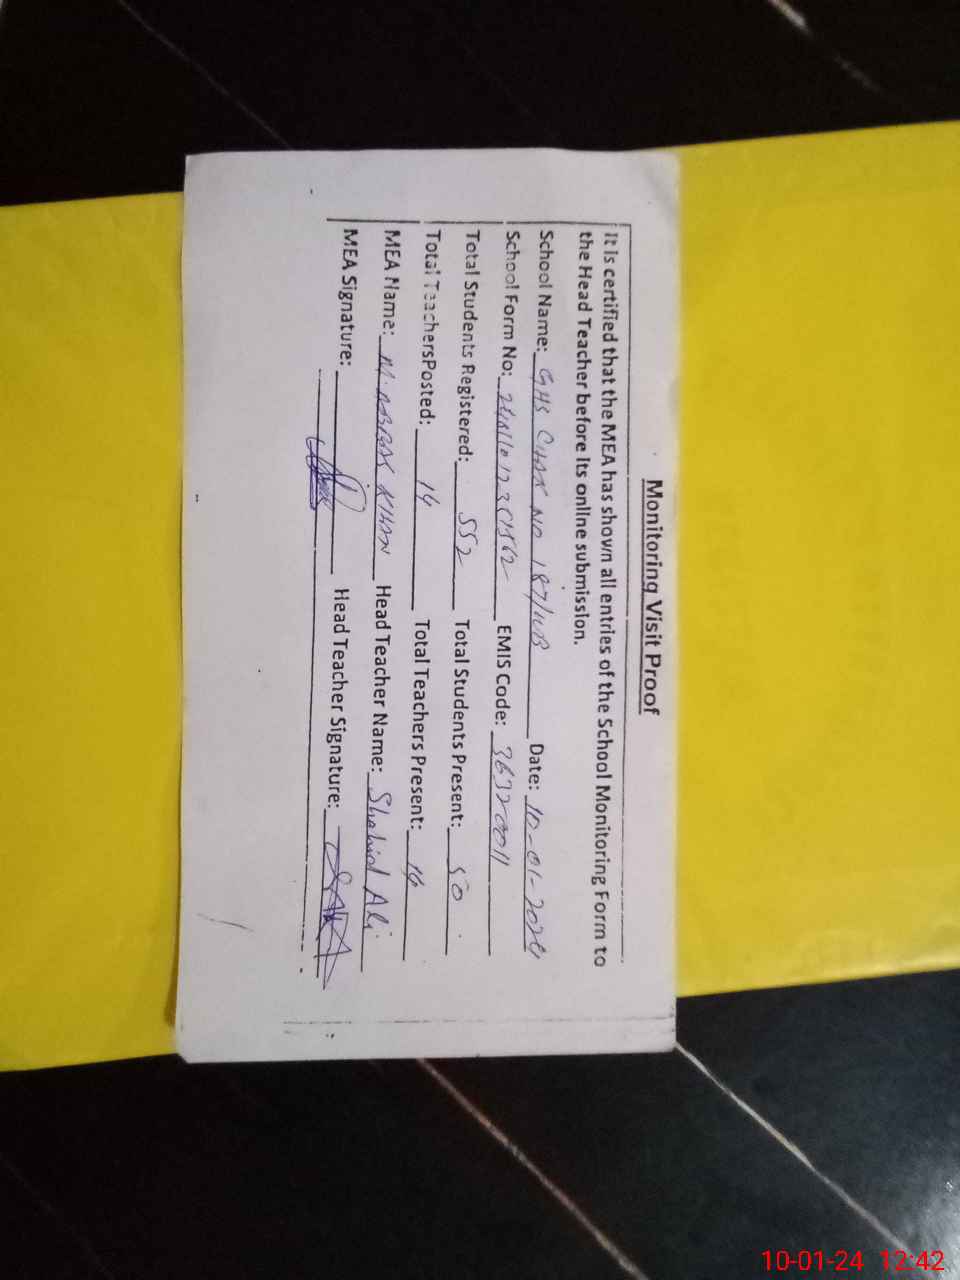 Monitoring Visit Proof
It is certified that the MEA has shown all entries of the School Monitoring Form to
the Head Teacher before its online submission.
School Name: GHS CHAK NO 187/WB Date: 10-01-2024
School Form No: EMIS Code: 36320011
Total Students Registered: 552 Total Students Present: 50
Total TeachersPosted: 14 Total Teachers Present: 14
MEA Name: M. ABBAS KHAN Head Teacher Name: Shahid Ali
MEA Signature: Head Teacher Signature:
10-01-24 12:42